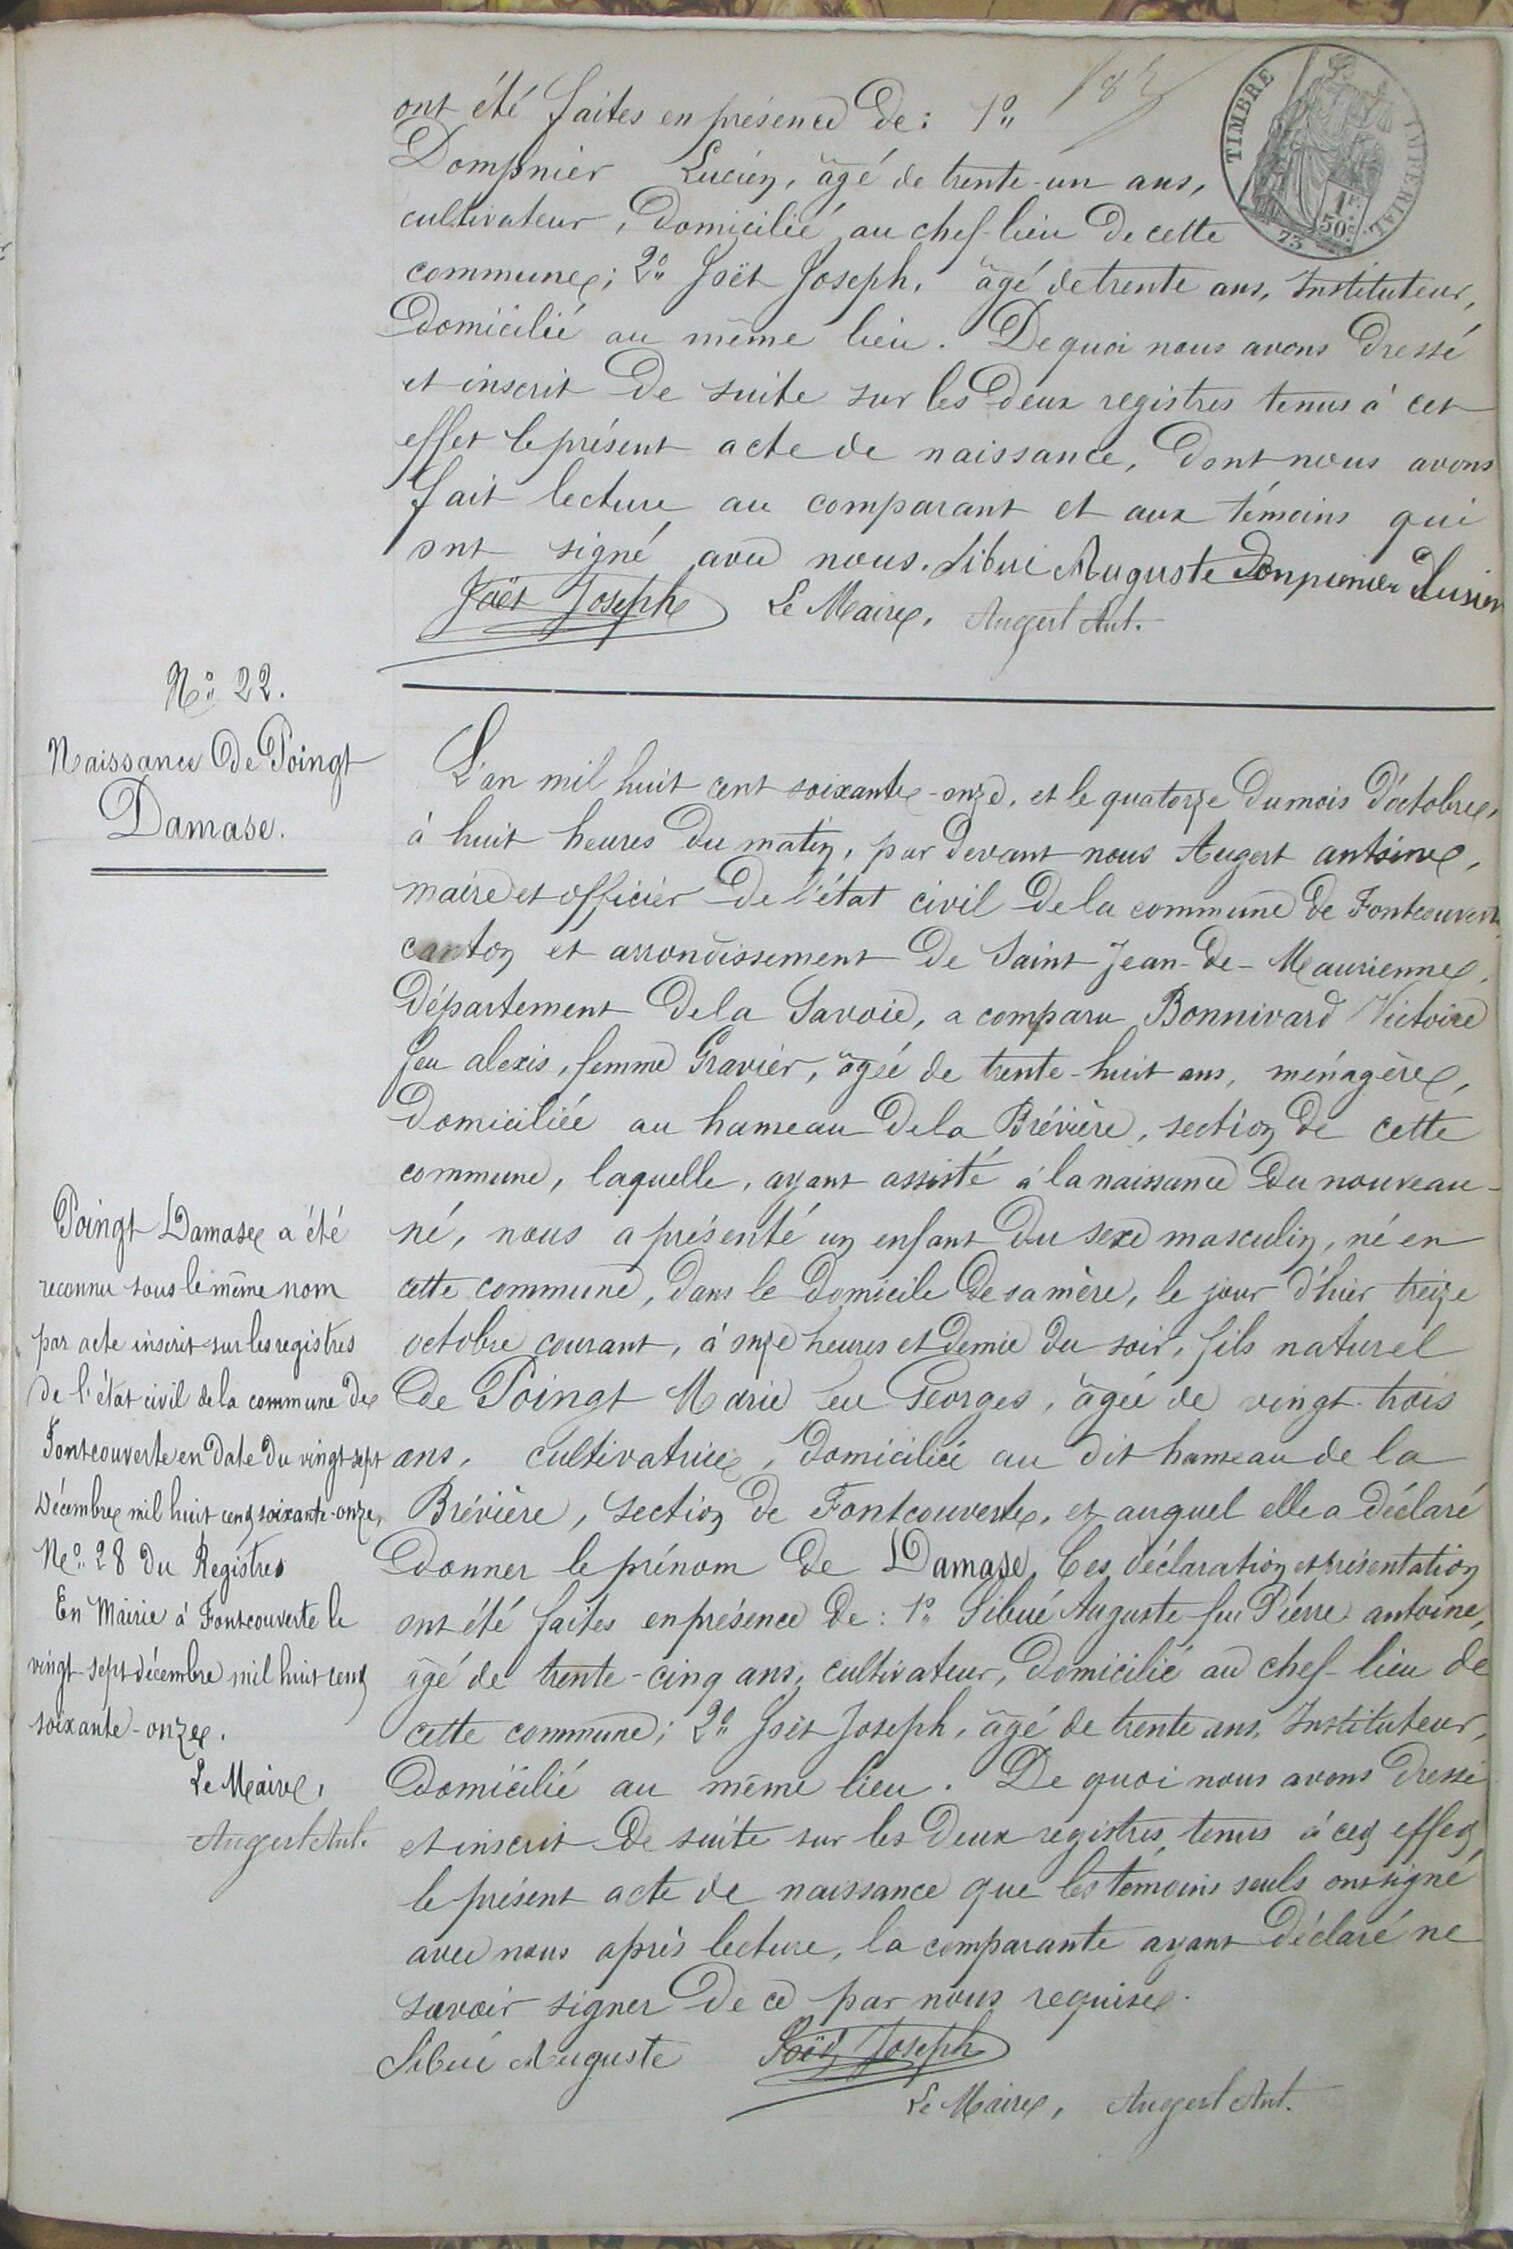 ont été faites en présence de : 1º
Dompnier Lucien, âgé de trente-un ans,
cultivateur, domicilié au chef-lieu de cette
commune ; 2º Joët Joseph, âgé de trente ans, Instituteur,
domicilié au même lieu. De quoi nous avons dressé
et inscrit de suite sur les deux registres tenus à cet
effet le présent acte de naissance, dont nous avons
fait lecture au comparant et aux témoins qui
ont signé avec nous. Sibué Auguste
Joët Joseph Le Maire, Augert Ant.
TIMBRE IMPERIAL
1F 50c
73
Nº 22.
Naissance de Poingt
Damase.
L'an mil huit cent soixante-onze, et le quatorze du mois d'octobre,
à huit heures du matin, par devant nous Augert antoine,
maire et officier de l'état civil de la commune de Fontcouverte
canton et arrondissement de Saint Jean-de-Maurienne,
département de la Savoie, a comparu Bonnivard Victoire
feu alexis, femme Gravier, âgée de trente-huit ans, ménagère,
domiciliée au hameau de la Brévière, section de cette
commune, laquelle, ayant assisté à la naissance du nouveau-
né, nous a présenté un enfant du sexe masculin, né en
cette commune, dans le domicile de sa mère, le jour d'hier treize
octobre courant, à onze heures et demie du soir, fils naturel
de Poingt Marie feu Georges, âgée de vingt-trois
ans, cultivatrice, domiciliée au dit hameau de la
Brévière, section de Fontcouverte, et auquel elle a déclaré
donner le prénom de Damase. Ces déclaration et présentation
ont été faites en présence de : 1º Sibué Auguste feu Pierre antoine,
âgé de trente-cinq ans, cultivateur, domicilié au chef-lieu de
cette commune ; 2º Joët Joseph, âgé de trente ans, Instituteur,
domicilié au même lieu. De quoi nous avons dressé
et inscrit de suite sur les deux registres tenus à cet effet
le présent acte de naissance que les témoins seuls ont signé
avec nous après lecture, la comparante ayant déclaré ne
savoir signer de ce par nous requise.
Sibué Auguste Joët Joseph
Le Maire, Augert Ant.
Poingt Damase a été
reconnu sous le même nom
par acte inscrit sur les registres
de l'état civil de la commune de
Fontcouverte en date du vingt sept
Décembre mil huit cent soixante-onze,
Nº 28 du Registre
En Mairie à Fontcouverte le
vingt-sept décembre mil huit cent
soixante-onze.
Le Maire,
Augert Ant.